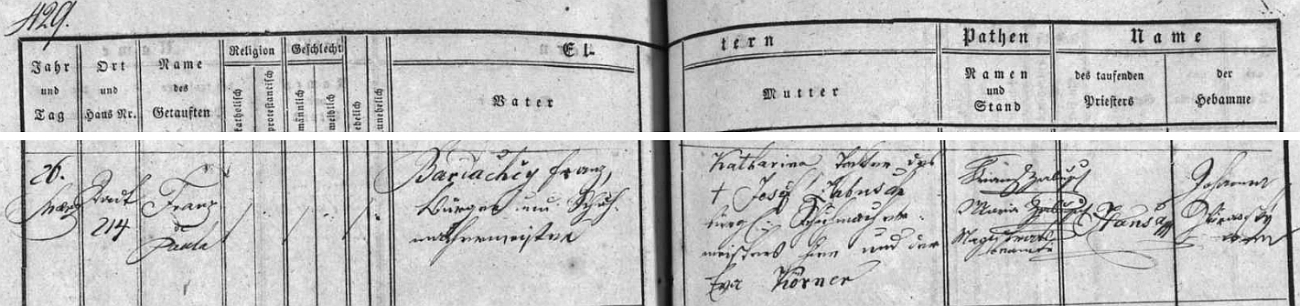 429.
Jahr und Tag
Ort und Haus Nr.
Name des Getauften
Religion
katholisch
protestantisch
Geschlecht
männlich
weiblich
ehelich
unehelich
El-
tern
Vater
Mutter
Pathen
Namen und Stand
Name
des taufenden Priesters
der Hebamme
26.
März
Stadt
214
Franz
de
Paula
Bariachity Franz,
Bürger und Schuh-
machermeister
Katharina Tochter des
† Josef
Schuhmacher-
meisters hier und der
Eva Körner
Franz
Maria
Magistrats
Johanna